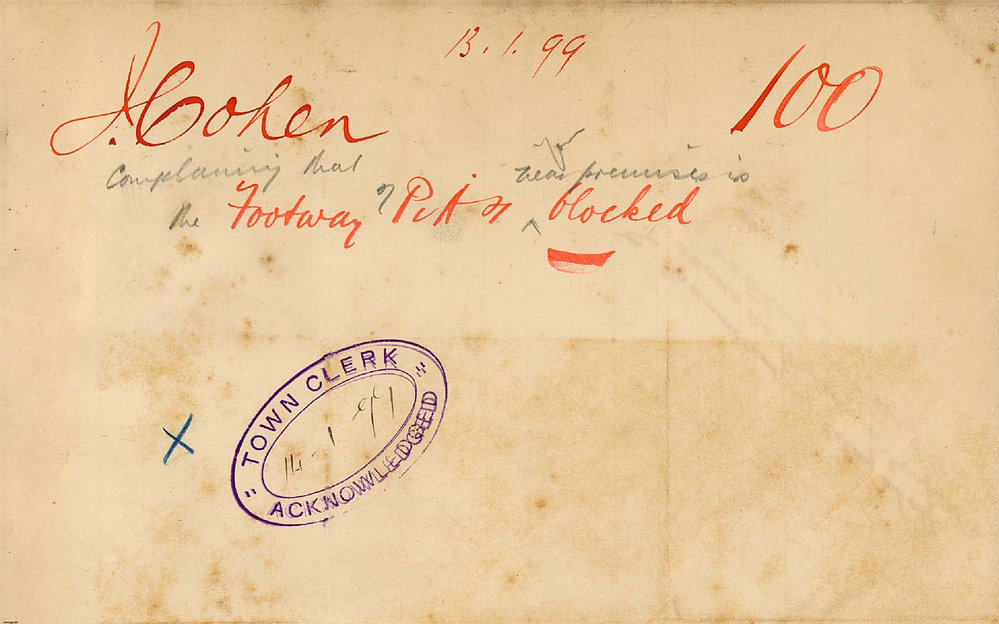 13.1.99
J. Cohen 100
Complaining that near premises is
the Footway of Pitt St blocked
X
TOWN CLERK
14-1-99
ACKNOWLEDGED